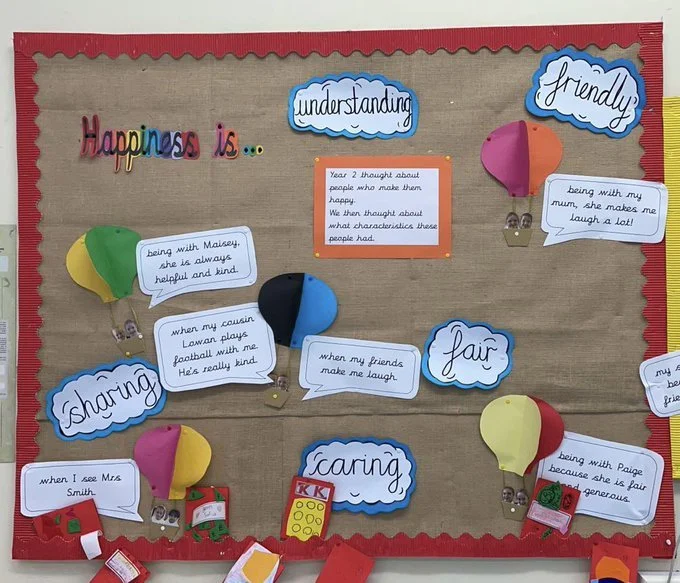 Happiness is...
understanding
friendly
Year 2 thought about
people who make them
happy.
We then thought about
what characteristics these
people had.
being with my
mum, she makes me
laugh a lot!
being with Maisey,
she is always
helpful and kind.
when my cousin
Lowan plays
football with me.
He's really kind.
when my friends
make me laugh.
fair
my s
be
frie
sharing
when I see Mrs
Smith.
caring
KK
being with Paige
because she is fair
and generous.